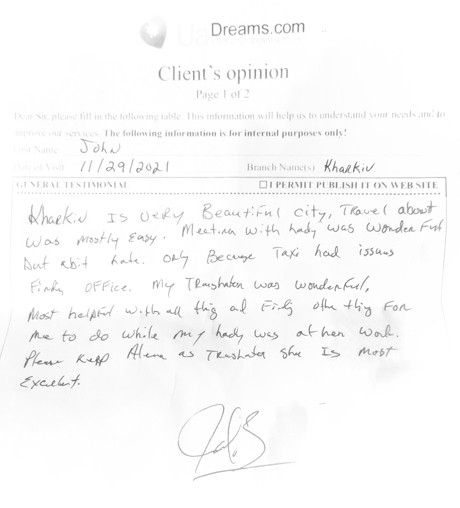 Dreams.com
Client's opinion
Page 1 of 2
Dear Sir, please fill in the following table. This information will help us to understand your needs and to
improve our services. The following information is for internal purposes only!
Last Name John
Date of Visit 11/29/2021 Branch Name(s) Kharkiv
GENERAL TESTIMONIAL ☐ I PERMIT PUBLISH IT ON WEB SITE
Kharkiv Is very Beautiful city, Travel about
was mostly Easy. Meeting with Lady was wonderful
But abit Late. only Because Taxi had issues
Finding OFFice. My Translator was wonderful,
Most helpful with all thig ad Fidg othe thig For
me to do while my Lady was at her work.
Please Keep Alena as Translator She Is most
Excellent.